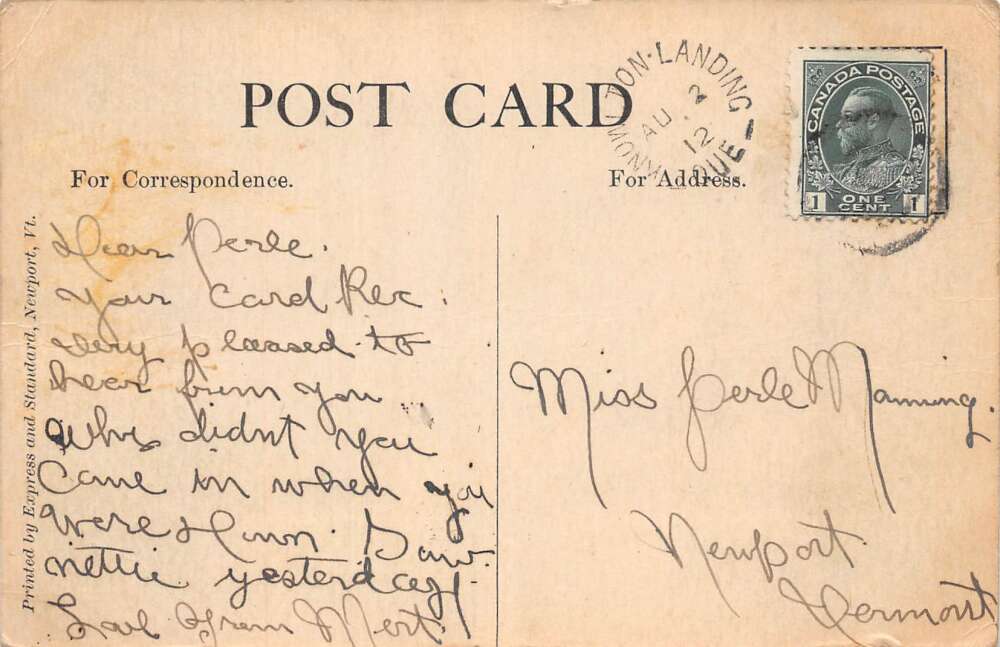 POST CARD
KNOWLTON-LANDING
AU 2
12
QUE
CANADA POSTAGE
1 ONE CENT 1
For Correspondence.
For Address.
Printed by Express and Standard, Newport, Vt.
Dear Perle.
Your Card Rec.
very pleased to
hear from you
why didnt you
Come in when you
were Down. Saw
nettie yesterday
Love from Mert.
Miss Perle M Manning.
Newport
Vermont